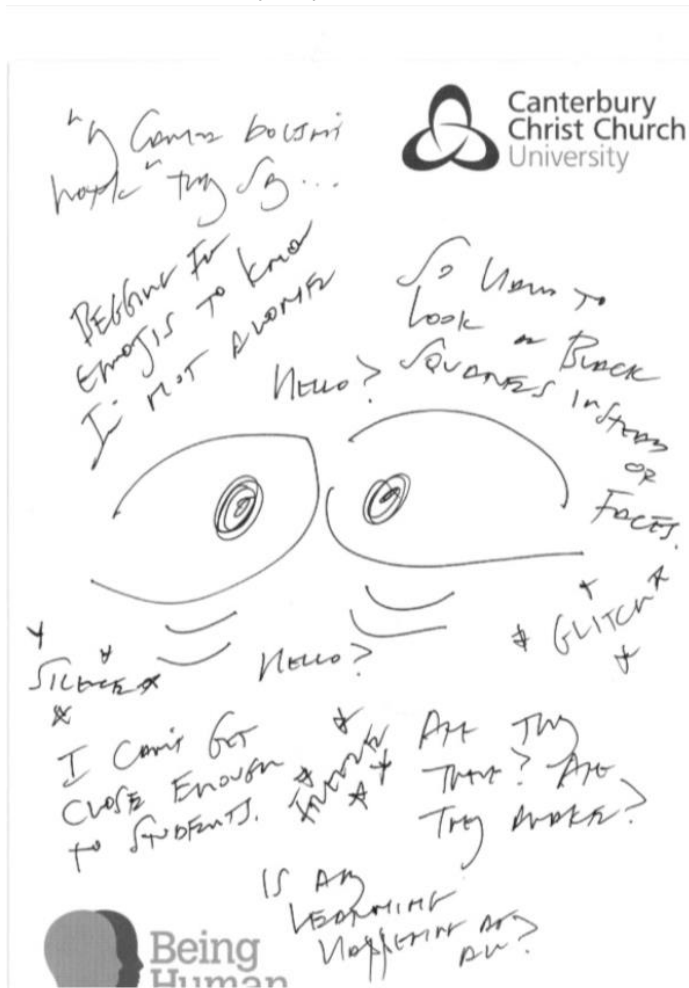 Canterbury
Christ Church
University
"My camera doesn't
work" they say...
BEGGING FOR
EMOJIS TO KNOW
I'm NOT ALONE
So USED TO
LOOK at BLACK
SQUARES INSTEAD
OF
FACES.
HELLO?
GLITCH
SILENCE
HELLO?
I CAN'T GET
CLOSE ENOUGH
to STUDENTS.
ARE THEY
THERE? ARE
THEY AWAKE?
IS ANY
LEARNING
HAPPENING AT
ALL?
Being
Human